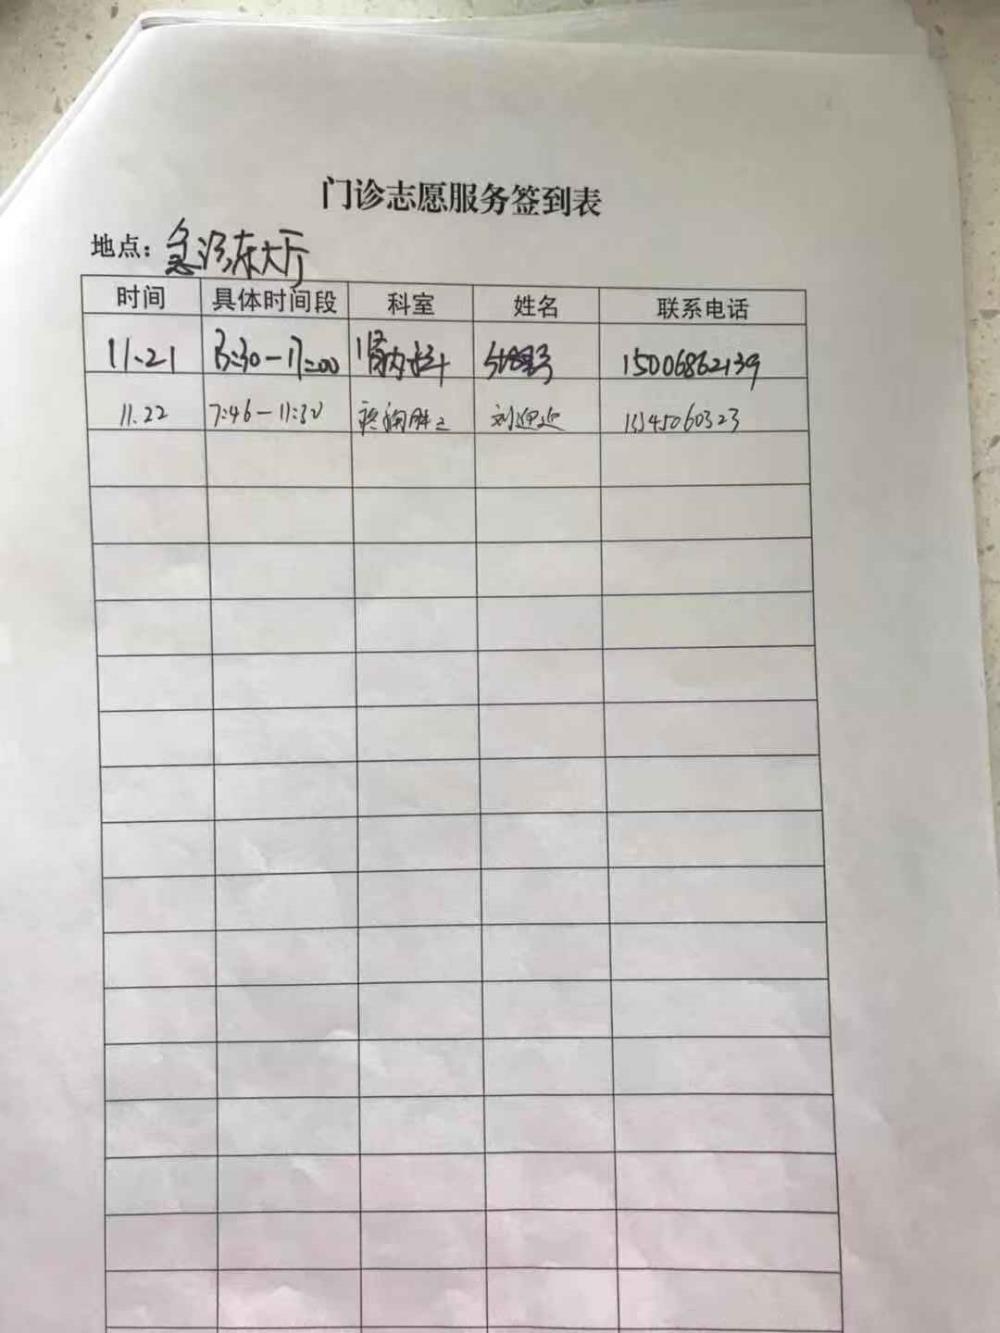 门诊志愿服务签到表
地点：急诊东大厅
时间 具体时间段 科室 姓名 联系电话
11.21 13:30-17:00 肾内科 15006862139
11.22 7:46-11:30 刘迎迎